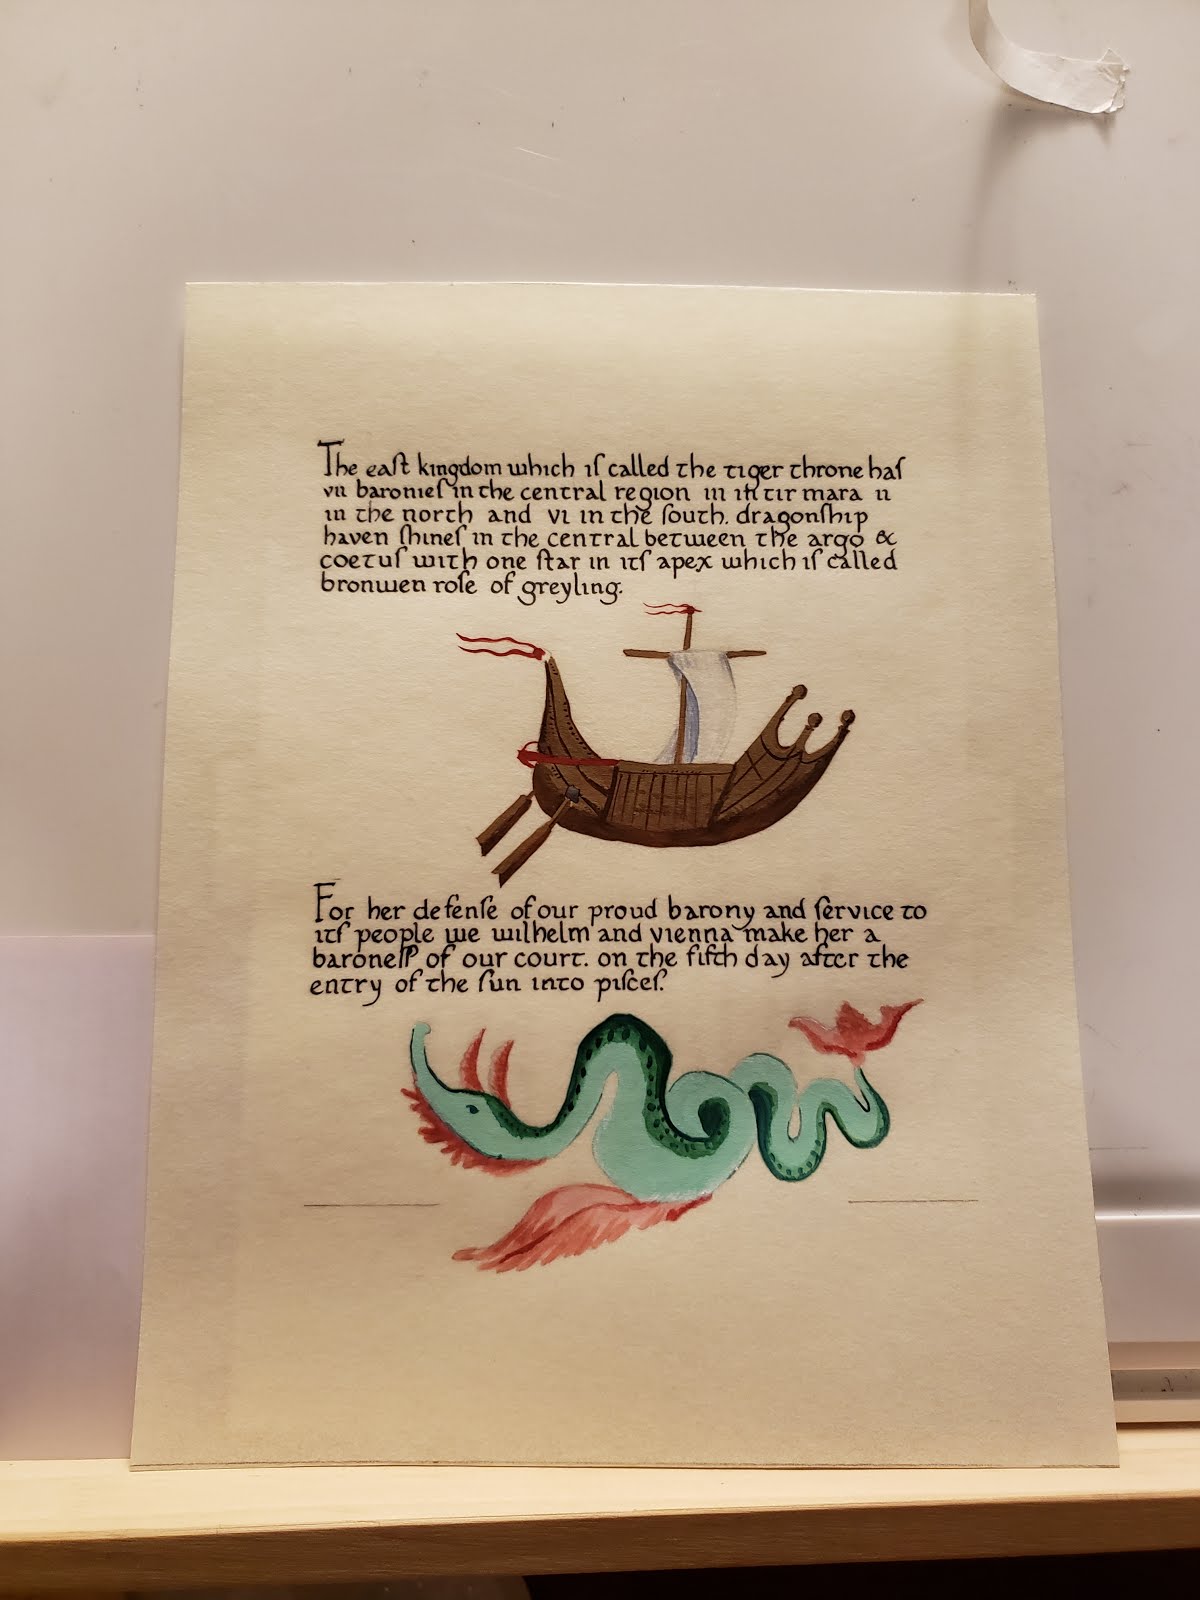 The eaſt kingdom which iſ called the tiger throne haſ
vii baronieſ in the central region iii in tir mara ii
in the north and vi in the ſouth. dragonſhip
haven ſhineſ in the central between the argo &
coetuſ with one ſtar in itſ apex which iſ called
bronwen roſe of greyling.
For her defenſe of our proud barony and ſervice to
itſ people we wilhelm and vienna make her a
baroneſſ of our court. on the fifth day after the
entry of the ſun into piſceſ.